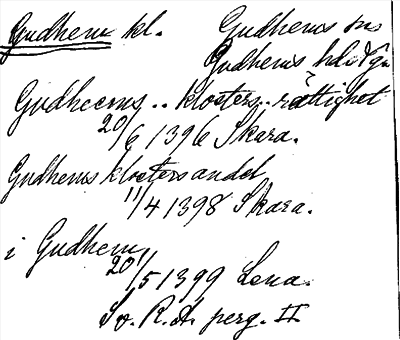 Gudhem kl. Gudhems sn
Gudhems hd Vgn
Gudheems .. klosters .. rättighet
20/6 1396 Skara.
Gudhems klostersandel
11/4 1398 Skara.
i Gudhem
20/5 1399 Lena.
Sv. R.A. perg. II